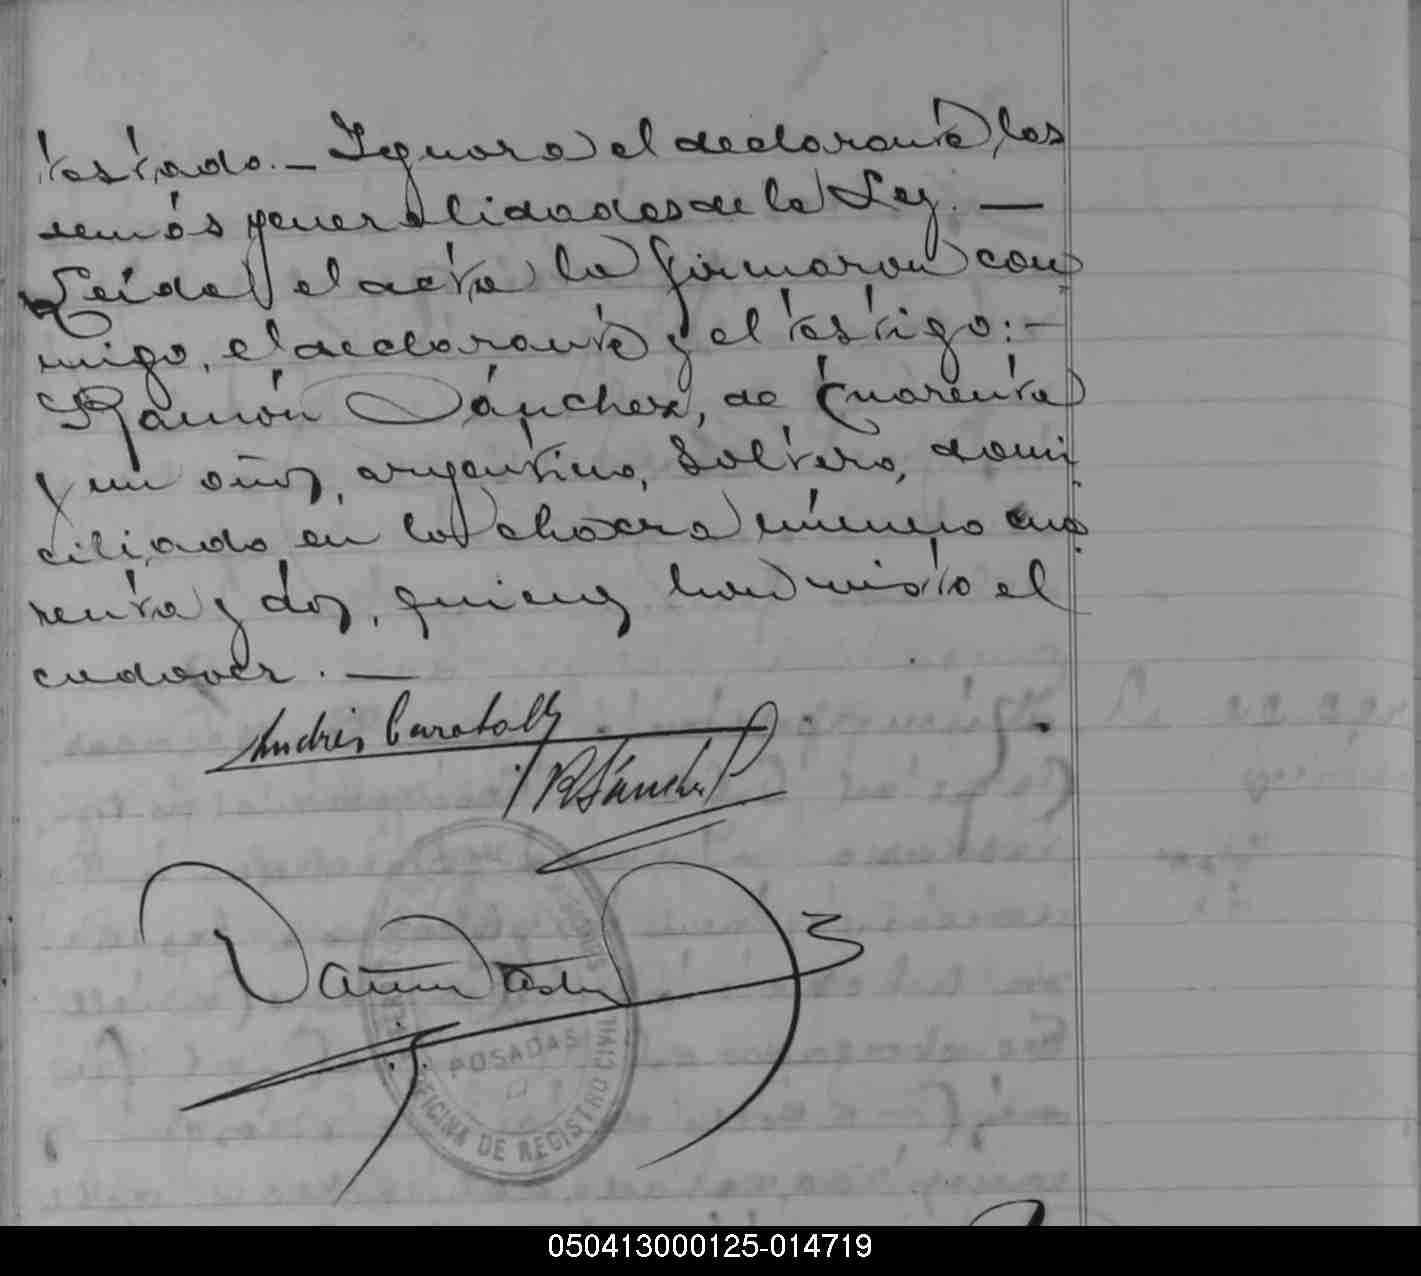 testado.— Ignora el declarante, las
demás generalidades de la Ley. —
Leída el acta la firmaron con
migo, el declarante y el testigo: -
Ramón Sánchez, de cuarenta
y un años, argentino, soltero, domi
ciliado en la chacra número cua
renta y dos, quienes han visto el
cadaver. —
Andrés
R Sánchez
POSADAS
OFICINA DE REGISTRO CIVIL
050413000125-014719